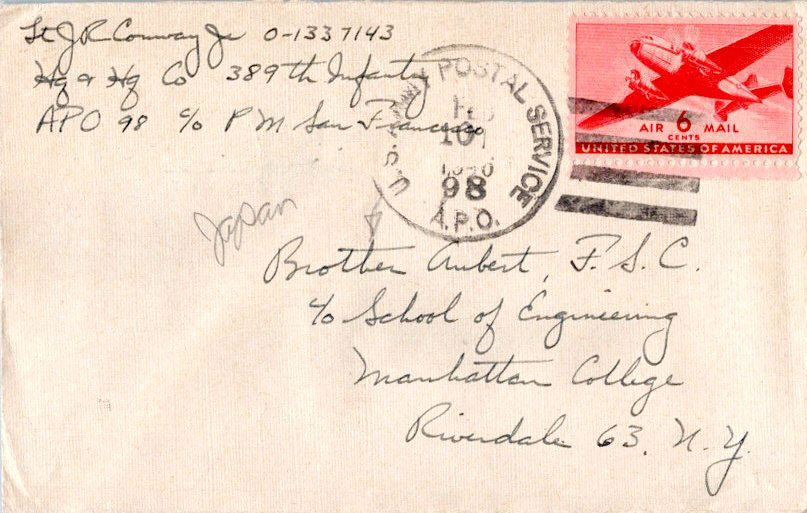 Lt J R Conway Jr 0-1337143
Hq & Hq Co 389th Infantry
APO 98 c/o P M San Francisco
U.S. ARMY POSTAL SERVICE
FEB
10
1946
98
A.P.O.
AIR 6 MAIL
CENTS
UNITED STATES OF AMERICA
Japan
Brother Aubert, F.S.C.
c/o School of Engineering
Manhattan College
Riverdale 63, N.Y.